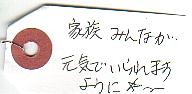 家族 みんなが‥
元気でいられます
ように☆〜